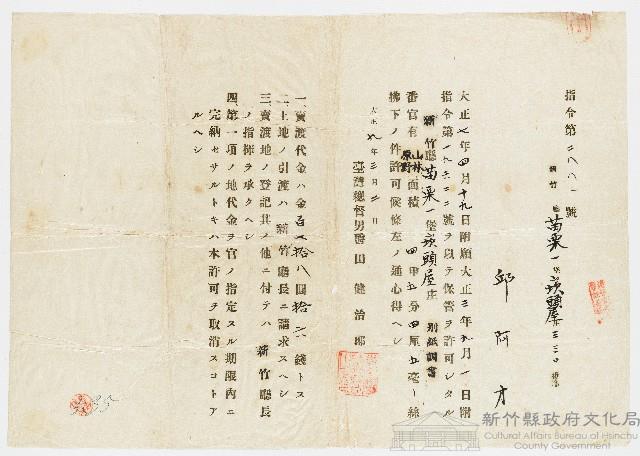 指令第二八八一號
新竹廳苗栗一堡崁頭屋庄三三〇番地
邱阿才
大正七年四月十九日附願大正三年九月一日附
指令第一九六二二號ヲ以テ保管ヲ許可シタル
新竹廳苗栗一堡崁頭屋庄 別紙調書
番官有山林原野面積四甲五分四厘五毫絲
拂下ノ件許可候條左ノ通心得ヘシ
大正九年三月二日
臺灣總督男爵田健治郎
一、賣渡代金ハ金百七拾八圓拾六錢トス
二、土地ノ引渡ハ新竹廳長ニ請求スヘシ
三、賣渡地ノ登記其ノ他ニ付テハ新竹廳長
ノ指揮ヲ承クヘシ
四、第一項ノ地代金ヲ官ノ指定スル期限內ニ
完納セサルトキハ本許可ヲ取消スコトア
ルヘシ
新竹縣政府文化局
Cultural Affairs Bureau of Hsinchu
County Government